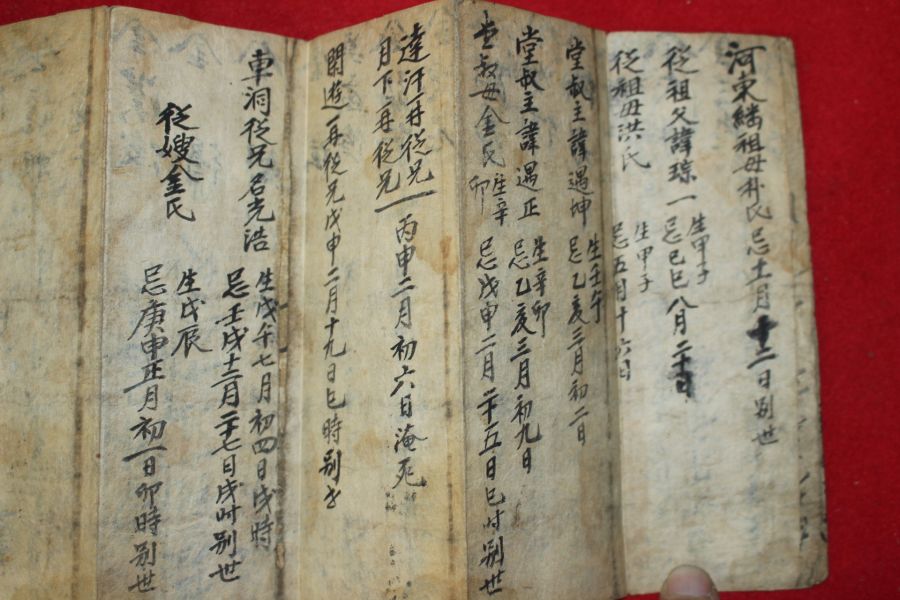 河東繼祖母朴氏 忌十一月十二日別世
從祖父諱琼一 生甲子 忌己巳八月二十日
從祖母洪氏 生甲子 忌五月十六日
堂叔主諱遇坤 生壬午 忌乙亥三月初二日
堂叔主諱遇正 生辛卯 忌乙亥三月初九日
堂叔母金氏 生辛卯 忌戊申二月二十五日巳时别世
達汗再從兄
月下再從兄 丙申二月初六日淹死
開遊再從兄戊申二月十九日巳時別世
車洞從兄名光浩 生戊午七月初四日戌時
忌壬戌十二月二十七日戌时别世
從嫂金氏 生戊辰
忌庚申正月初一日卯時別世